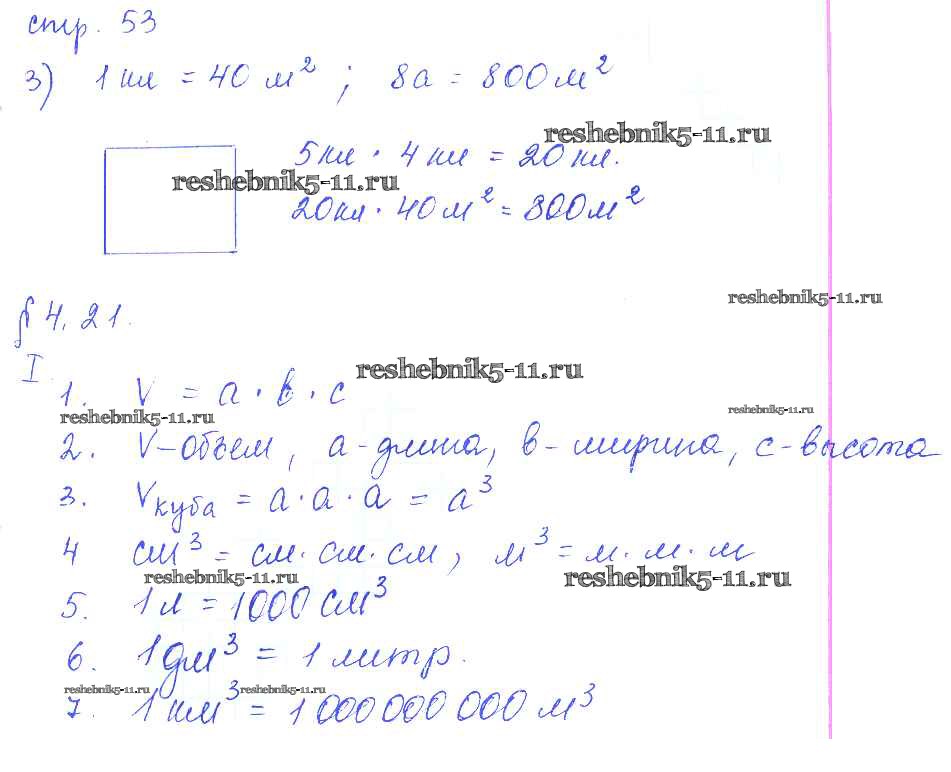 стр. 53
3) 1 кл = 40 м² ; 8а = 800 м²
reshebnik5-11.ru
5кл · 4 кл = 20 кл.
reshebnik5-11.ru
20кл · 40 м² = 800 м²
reshebnik5-11.ru
§ 4. 21.
I
reshebnik5-11.ru
1. V = a · b · c
reshebnik5-11.ru
reshebnik5-11.ru
2. V-объем, a-длина, в-ширина, с-высота
3. Vкуба = a · a · a = a³
4 см³ = см · см · см, м³ = м · м · м
reshebnik5-11.ru
reshebnik5-11.ru
5. 1л = 1000 см³
6. 1дм³ = 1 литр.
reshebnik5-11.ru
reshebnik5-11.ru
7. 1 км³ = 1 000 000 000 м³